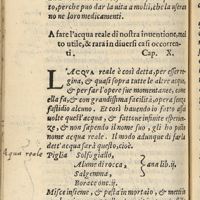 to, perche può dar la vita a molti, che la useran
no ne loro medicamenti.
A fare l'acqua reale di nostra inuentione, mol
to utile, & rara in diuersi casi occorren
ti. Cap. X.
L'ACQUA reale è così detta, per esser
gina, & quasi sopra tutte le altre acque
& per far l'opere sue momentanee, come
ella fa, & con grandissima facilità, opera senza
fastidio alcuno. Et così hauendo io fatto
uolte quell'acqua, & fattone infinite esperien
ze, & non sapendo il nome suo, gli ho
nome acqua reale. Il modo adunque di far la
dett'acqua sarà questo, cioè.
Acqua reale
Piglia Solfo giallo,
Alume di rocca,
Salgemma,
Borace onc. ij.
ana lib. ij.
Misce insieme, & pesta in mortaio, & mettin